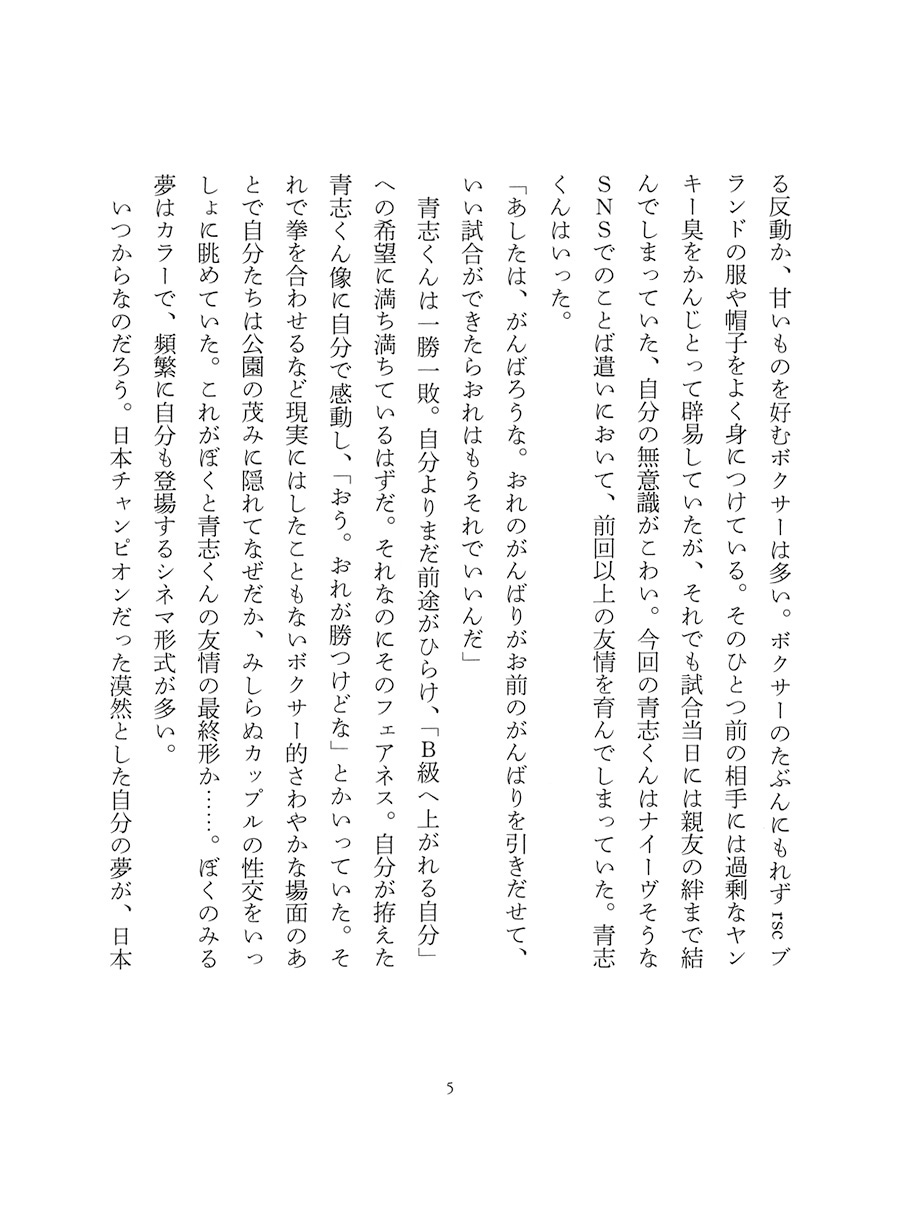 る反動か、甘いものを好むボクサーは多い。ボクサーのたぶんにもれずrscブ
ランドの服や帽子をよく身につけている。そのひとつ前の相手には過剰なヤン
キー臭をかんじとって辟易していたが、それでも試合当日には親友の絆まで結
んでしまっていた、自分の無意識がこわい。今回の青志くんはナイーヴそうな
ＳＮＳでのことば遣いにおいて、前回以上の友情を育んでしまっていた。青志
くんはいった。
「あしたは、がんばろうな。おれのがんばりがお前のがんばりを引きだせて、
いい試合ができたらおれはもうそれでいいんだ」
　青志くんは一勝一敗。自分よりまだ前途がひらけ、「Ｂ級へ上がれる自分」
への希望に満ち満ちているはずだ。それなのにそのフェアネス。自分が拵えた
青志くん像に自分で感動し、「おう。おれが勝つけどな」とかいっていた。そ
れで拳を合わせるなど現実にはしたこともないボクサー的さわやかな場面のあ
とで自分たちは公園の茂みに隠れてなぜだか、みしらぬカップルの性交をいっ
しょに眺めていた。これがぼくと青志くんの友情の最終形か……。ぼくのみる
夢はカラーで、頻繁に自分も登場するシネマ形式が多い。
　いつからなのだろう。日本チャンピオンだった漠然とした自分の夢が、日本
5